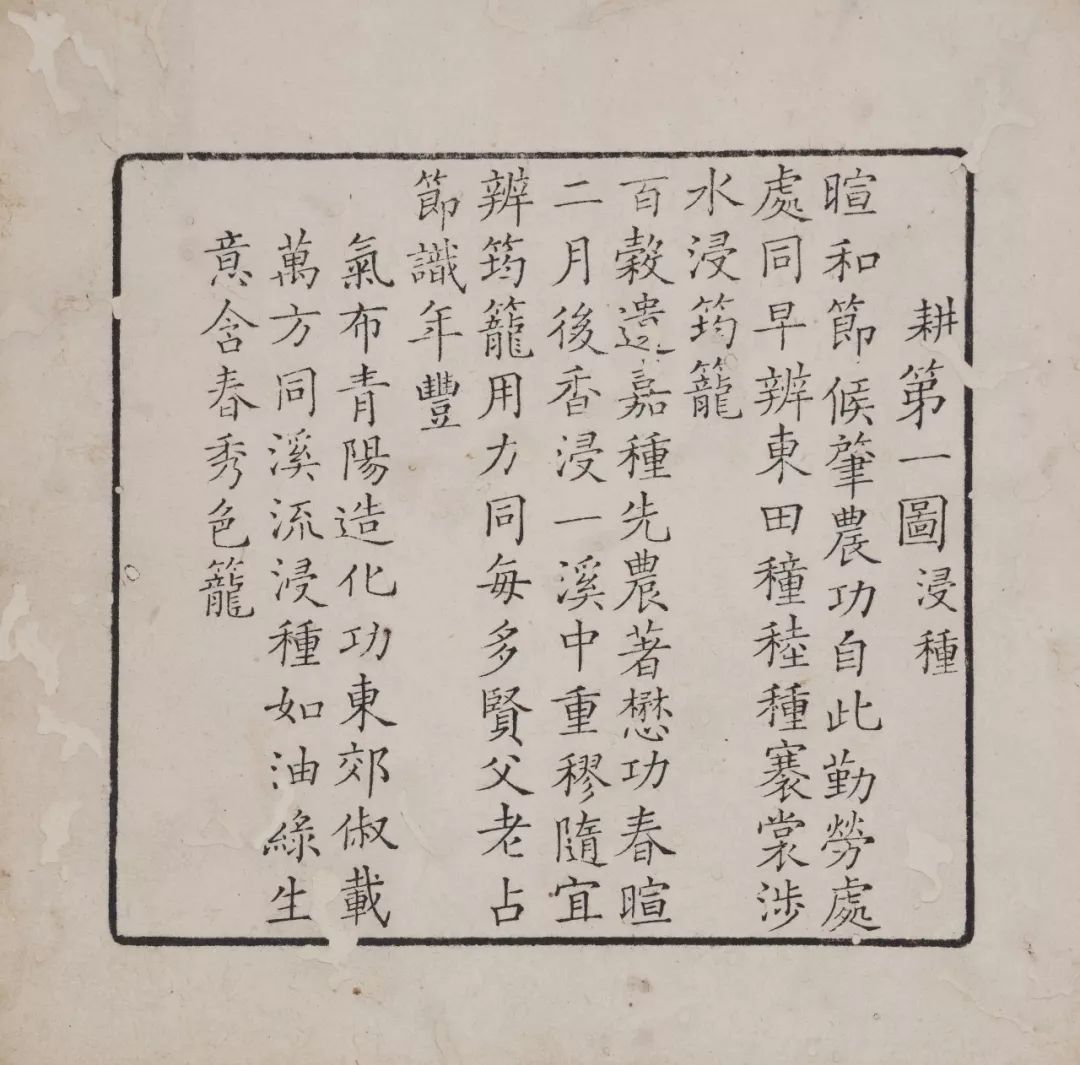 耕第一圖浸種
暄和節候肇農功自此勤勞處
處同早辨東田穜稑種褰裳涉
水浸筠籠
百穀遺嘉種先農著懋功春暄
二月後香浸一溪中重穋隨宜
辨筠籠用力同每多賢父老占
節識年豐
氣布青陽造化功東郊俶載
萬方同溪流浸種如油綠生
意含春秀色籠